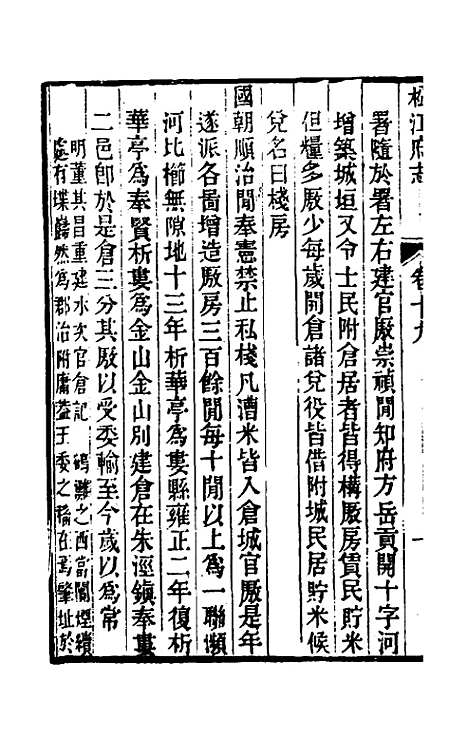 松江府志 卷十九
署隨於署左右建官廒崇禎間知府方岳貢開十字河
增築城垣又令士民附倉居者皆得構廒房賃民貯米
但糧多廒少每歲開倉諸兌役皆借附城民居貯米候
兌名曰棧房
國朝順治間奉憲禁止私棧凡漕米皆入倉城官廒是年
遂派各圖增造廒房三百餘間每十間以上爲一聯瀕
河比櫛無隙地十三年析華亭爲婁縣雍正二年復析
華亭爲奉賢析婁爲金山金山別建倉在朱涇鎮奉婁
二邑卽於是倉三分其廒以受委輸至今歲以爲常
明董其昌重建水次官倉記 鶴灘之西當闤煙續
處有堞巋然爲郡治附庸蓋王委之積在焉肇址於